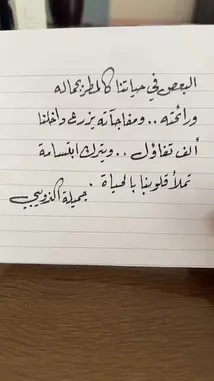 البعض في حياتنا كالمطر بجماله
ورائحته .. ومفاجآته يزرع داخلنا
ألف تفاؤل .. ويترك ابتسامة
تملأ قلوبنا بالحياة .
جميلة الذويبي